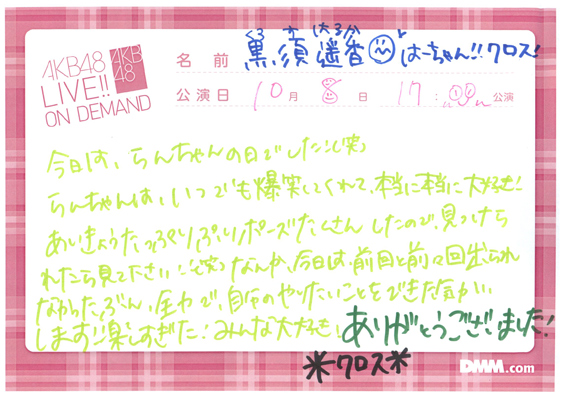 AKB48
LIVE!!
ON DEMAND
AKB
48
くろ す はるか
名前 黒須遥香 はーちゃん!! クロス!
公演日 10月8日 17:00公演
今日は、らんちゃんの日でした!(笑)
らんちゃんは、いつでも爆笑してくれて、本当に本当に大好き!
あいきょうたっぷりぷりポーズたくさんしたので、見つけら
れたら見て下さい(笑) なんか、今日は、前回と前々回出られ
なかったぶん、全力で、自分のやりたいことをできた気がい
します!! 楽しすぎた! みんな大好き! ありがとうございました!
*クロス*
DMM.com